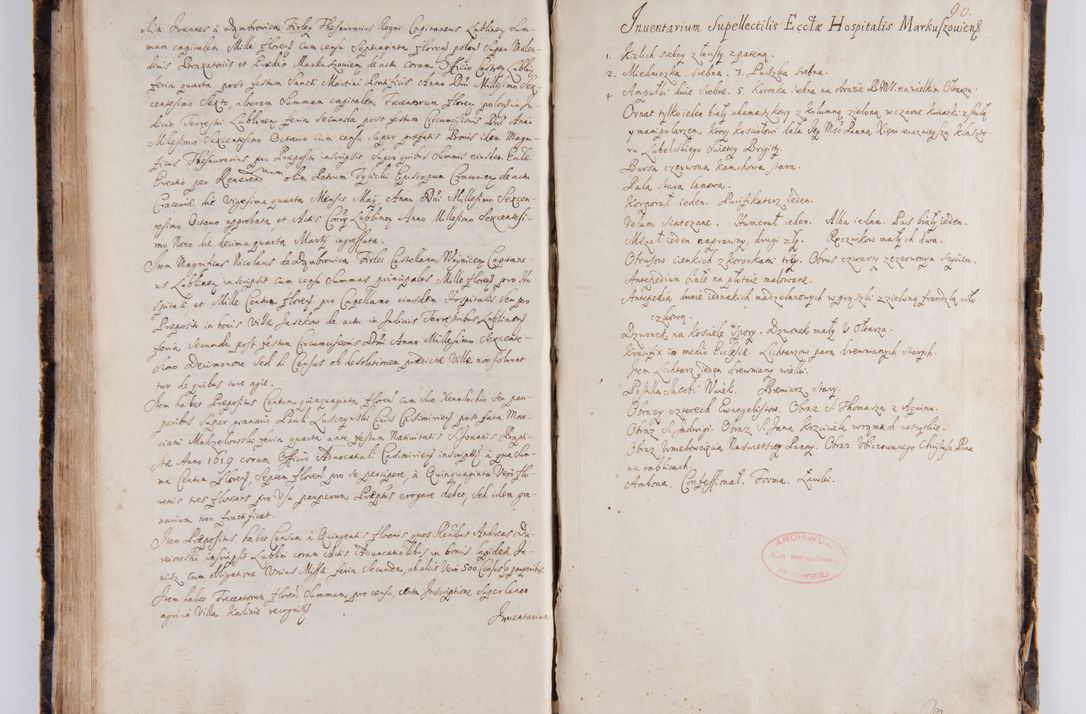 olim Joannes à Dąmbrovica Firley Thesaurarius Regni Capitaneus Lublinen̄ Sum-
mam capitalem Mille florenꝝ cum censu Septuaginta florenꝝ polon̄ super Molen-
dinis Braxatoriis et Prædio Markuszovien̄ de actu coram Officio Castren̄ Lublin̄
feria quarta post festum Sancti Martini Pontificis Anno Dn̄i Millesimo Sex
centesimo Sexto, alteram Summam capitalem Trecentorum floren̄ polon̄ in Ju
dicio Terrestri Lublinen̄ feria Secunda post festum Circumcisionis Dn̄i Anni
Millesimi Sexcentesimi Octavo cum censu super præfatis Bonis idem Magni-
ficus Thesaurarius pro Præposito inscripsit super quibus Summis eiusdem Eccl̄æ
Erectio per Reverend̄mum olim Petrum Tylicki Episcopum Cracovien̄ de actu
Cracoviæ die Vigesima quarta Mensis Maij Anno Dn̄i Millesimo Sexcen-
tesimo Octavo approbata et Actis Cons̄ry Lublinen̄ Anno Millesimo Sexcentesi-
mo Nono die decima quarta Martij ingrossata.
Item Magnificus Nicolaus de Dąmbrovica Firlei Castellanus Woynicen̄ Capitane-
us Lublinen̄ inscripsit cum censu Summas principales Mille florenꝝ pro Ho
spitali et Mille Centum florenꝝ pro Capellano eiusdem Hospitalis seu pro
Præposito in bonis Villæ Jastkow de actu in Judiciis Terrestribus Lublinen̄
feria Secunda post festum Circumcisionis Dn̄i Anno Millesimo Sexcente-
simo Decimonono Sed hi Census ob desolationem prædictæ Villæ non solvun-
tur de quibus iure agit.
Item habet Præpositus Centum quinquaginta florenꝝ cum suo Xenodochio seu pau-
peribus super granario Pauli Lussczynski Civis Casimirien̄ post fata Mar-
ciani Madzelowski feria quarta ante festum Nativitatis S. Joannis Bapti-
stæ Anno 1619 coram Officio Advocatiali Casimirien̄ inscriptꝭ à qua Sum-
ma Centum florenꝝ, Septem florenꝝ pro se percipere, à Quinquaginta Verò flo-
renis tres florenos pro Usu pauperum Præpositus erogare debet, Sed idem gra-
narium non fructificat.
Item Præpositus habet Censum à Quingentis florenis quos Rendus Andreas
inscripsit Lublini coram actis Advocatialibus in bonis
cum obligatione Unius Missæ feria Secunda, ab aliis Verò 500 Census à pauperibus.
Item habet Trecentorum florenꝝ Summam, pro censu, Inscriptione super laneo
agri in Villa Kalinie recognitꝭ
Inventarium
90.
Inventarium Supellectilis Ecclæ Hospitalis Markuszovien̄
1. Kielich srebny złoisty z pateną.
2. Miedniczka srebna. 3. Puszka srebna.
4 Ampułki dwie srebne. 5. Koronka srebna na obrazie B.M.V. na wielkim Ołtarzu.
Ornat tylko ieden biały adamaszkowy z kolumną zieloną w czarne kwiatki z stułą
y manipularzem, ktory kosciołowi dała Jey Mść Panna Xięni teraznieysza klaszto-
ru Lubelskiego Swiętey Brigitty.
Bursa czerwona kamchowa stara.
Pala stara lanowa.
Korporał ieden. Purifikaterz ieden.
Velum siatczane. Humerał ieden. Alba iedna. Pas biały ieden.
Mszał ieden naprawny, drugi zły. Ręcznikow małych dwa.
Obrusow cienkich z koronkami trzy. Obrus czwarty z czerwonym szyciem.
Antepedium białe na płotnie malowane.
Antepedia dwoie iednakich madzelanowych w prążki z zieloną frandzlą włó-
czkową.
Dzwonek na kosciele spory. Dzwonek mały u Ołtarza.
Krucifix in medio Ecclesiæ. Lichtarzow para drewnianych starych.
Item Lichtarz ieden drewniany wielki.
Postilla Jacobi Wuiek. Breviarz stary.
Obrazy czterech Ewangelistow. Obraz S. Thomasza z Aquinu.
Obraz S. Jadwigi. Obraz S. Jana krzciciela w ramach wszystkie.
Obraz Wniebowzięcia Naswiętszey Panny. Obraz Ubiczowanego Chrystusa Pana
na tablicach.
Ambona. Confessional. Forma. Ławki.
ARCHIWUM
Kurii Metropolitalnej
KRAKOWSKIEJ